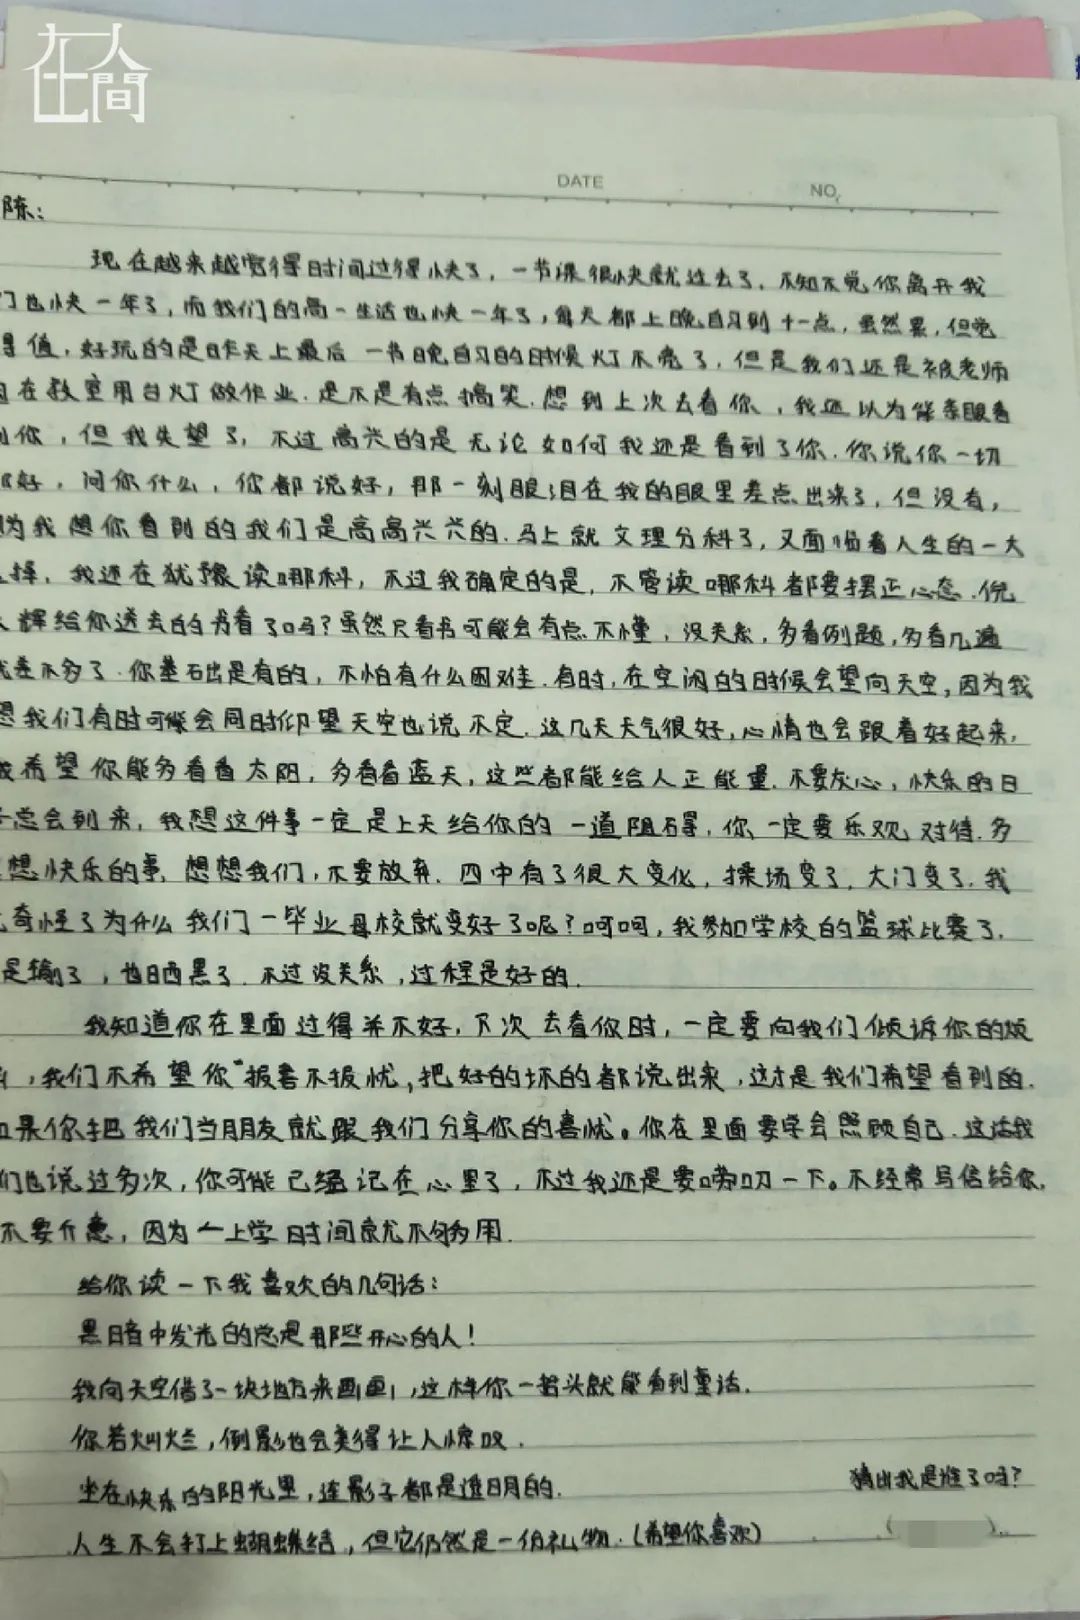 在人間
DATE
NO.
陈：
现在越来越觉得时间过得快了，一节课很快就过去了，不知不觉你离开我
们也快一年了，而我们的高一生活也快一年了，每天都上晚自习到十一点，虽然累，但觉
得值，好玩的是昨天上最后一节晚自习的时候灯不亮了，但是我们还是被老师
在教室用台灯做作业.是不是有点搞笑.想到上次去看你，我还以为能亲眼看
到你，但我失望了，不过高兴的是无论如何我还是看到了你.你说你一切
都好，问你什么，你都说好，那一刻眼泪在我的眼里差点出来了，但没有，
因为我想你看到的我们是高高兴兴的.马上就文理分科了，又面临着人生的一大
选择，我还在犹豫读哪科，不过我确定的是，不管读哪科都要摆正心态.倪
辉给你送去的书看了吗?虽然只看书可能会有点不懂，没关系，多看例题，多看几遍
就差不多了.你基础是有的，不怕有什么困难.有时，在空闲的时候会望向天空，因为我
想我们有时可能会同时仰望天空也说不定.这几天天气很好，心情也会跟着好起来，
我希望你能多看看太阳，多看看蓝天，这些都能给人正能量.不要灰心，快乐的日
子总会到来，我想这件事一定是上天给你的一道阻碍，你一定要乐观对待.多
想快乐的事，想想我们，不要放弃.四中有了很大变化，操场变了，大门变了.我
奇怪了为什么我们一毕业母校就变好了呢?呵呵，我参加学校的篮球比赛了.
是输了，也晒黑了.不过没关系，过程是好的.
我知道你在里面过得并不好，下次去看你时，一定要向我们倾诉你的烦
，我们不希望你"报喜不报忧，把好的坏的都说出来，这才是我们希望看到的.
如果你把我们当朋友就跟我们分享你的喜忧。你在里面要学会照顾自己.这话我
们也说过多次，你可能已经记在心里了，不过我还是要唠叨一下。不经常写信给你，
不要介意，因为一上学时间就不够用.
给你读一下我喜欢的几句话：
黑暗中发光的总是那些开心的人！
我向天空借了一块地方来画画，这样你一抬头就能看到童话.
你若灿烂，倒影也会美得让人惊叹.
坐在快乐的阳光里，连影子都是透明的.
猜出我是谁了吗?
人生不会打上蝴蝶结，但它仍然是一份礼物.(希望你喜欢)
( ).